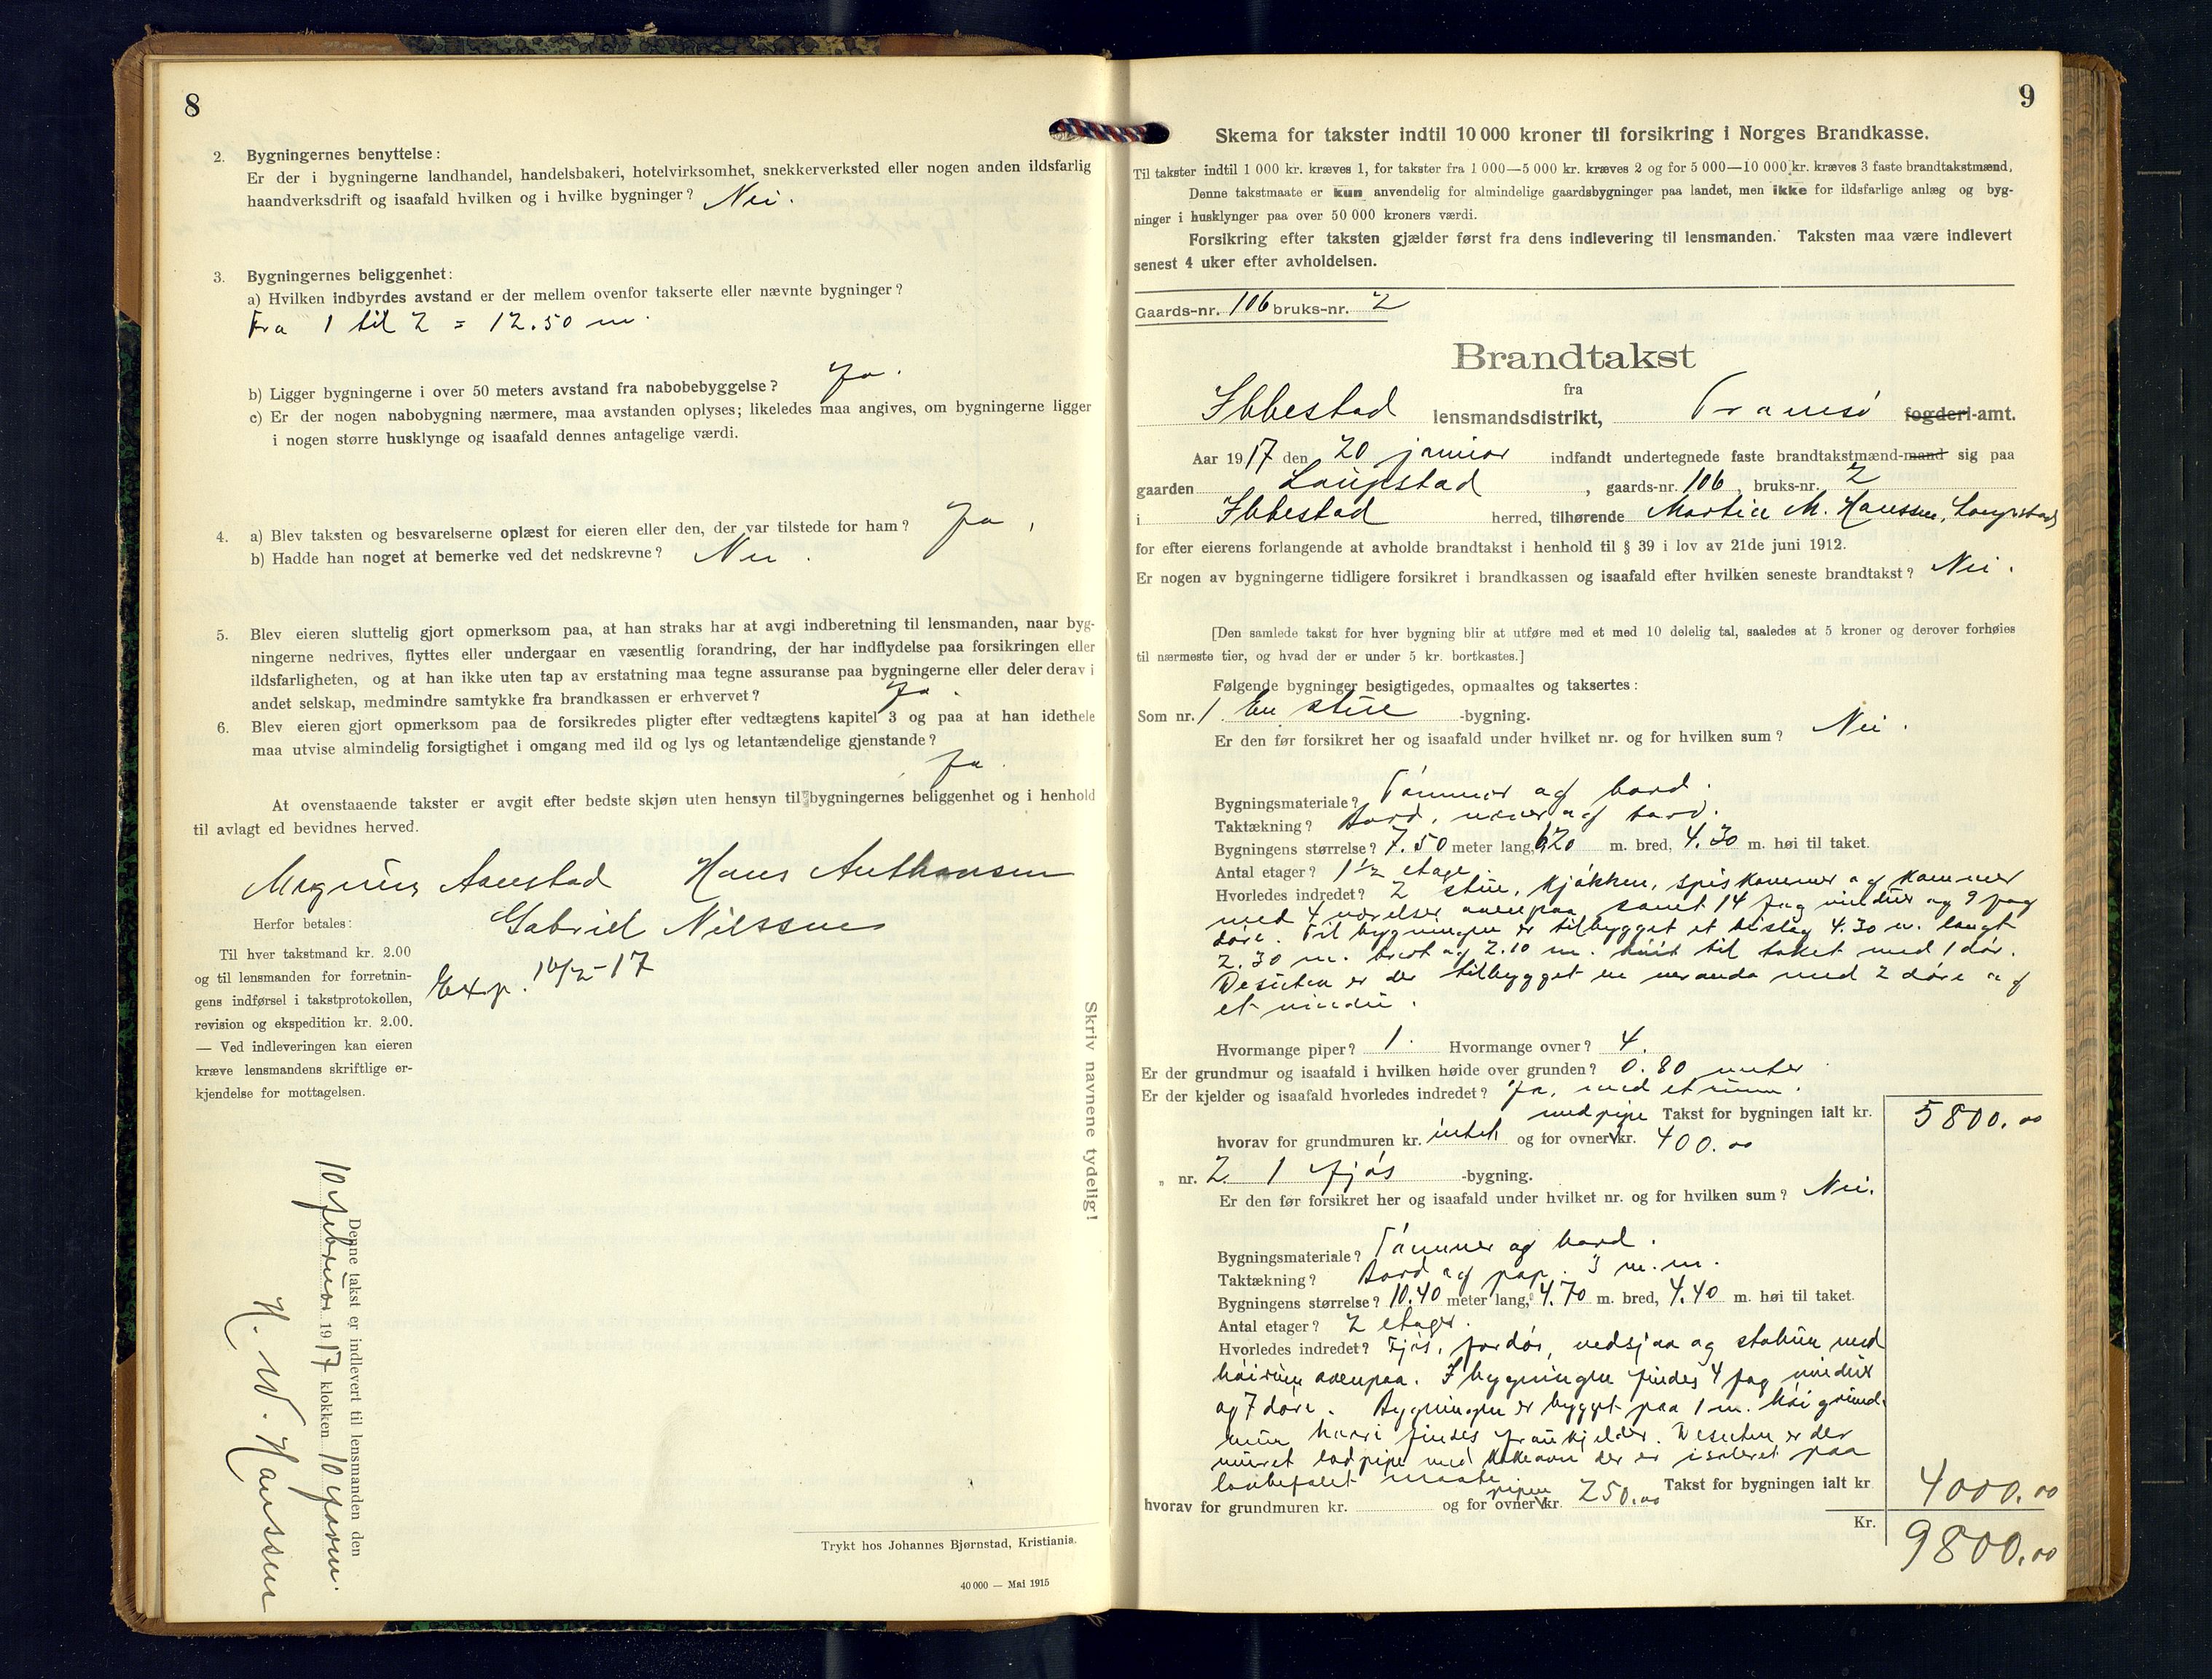 8
2. Bygningernes benyttelse:
Er der i bygningerne landhandel, handelsbakeri, hotelvirksomhet, snekkerverksted eller nogen anden ildsfarlig
haandverksdrift og isaafald hvilken og i hvilke bygninger? Nei.
3. Bygningernes beliggenhet:
a) Hvilken indbyrdes avstand er der mellem ovenfor takserte eller nævnte bygninger?
Fra 1 til 2 = 12.50 m.
b) Ligger bygningerne i over 50 meters avstand fra nabobebyggelse? Ja.
c) Er der nogen nabobygning nærmere, maa avstanden oplyses; likeledes maa angives, om bygningerne ligger
i nogen større husklynge og isaafald dennes antagelige værdi.
4. a) Blev taksten og besvarelserne oplæst for eieren eller den, der var tilstede for ham? Ja,
b) Hadde han noget at bemerke ved det nedskrevne? Nei.
5. Blev eieren sluttelig gjort opmerksom paa, at han straks har at avgi indberetning til lensmanden, naar byg-
ningerne nedrives, flyttes eller undergaar en væsentlig forandring, der har indflydelse paa forsikringen eller
ildsfarligheten, og at han ikke uten tap av erstatning maa tegne assuranse paa bygningerne eller deler derav i
andet selskap, medmindre samtykke fra brandkassen er erhvervet? Ja.
6. Blev eieren gjort opmerksom paa de forsikredes pligter efter vedtægtens kapitel 3 og paa at han idethele
maa utvise almindelig forsigtighet i omgang med ild og lys og letantændelige gjenstande?
Ja.
At ovenstaaende takster er avgit efter bedste skjøn uten hensyn til bygningernes beliggenhet og i henhold
til avlagt ed bevidnes herved.
Magnus Aanstad Hans Anthonsen
Gabriel Nilssen
Herfor betales:
Til hver takstmand kr. 2.00
og til lensmanden for forretnin-
gens indførsel i takstprotokollen,
revision og ekspedition kr. 2.00.
— Ved indleveringen kan eieren
kræve lensmandens skriftlige er-
kjendelse for mottagelsen.
Exp. 16/2-17
Skriv navnene tydelig!
Denne takst er indlevert til lensmanden den
10 februar 1917 klokken 10 form.
H. W. Hanssen
Trykt hos Johannes Bjørnstad, Kristiania.
40 000 — Mai 1915
9
Skema for takster indtil 10 000 kroner til forsikring i Norges Brandkasse.
Til takster indtil 1 000 kr. kræves 1, for takster fra 1 000—5 000 kr. kræves 2 og for 5 000—10 000 kr. kræves 3 faste brandtakstmænd,
Denne takstmaate er kun anvendelig for almindelige gaardsbygninger paa landet, men ikke for ildsfarlige anlæg og byg-
ninger i husklynger paa over 50 000 kroners værdi.
Forsikring efter taksten gjælder først fra dens indlevering til lensmanden. Taksten maa være indlevert
senest 4 uker efter avholdelsen.
Gaards-nr. 106 bruks-nr. 2
Brandtakst
fra
Ibbestad lensmandsdistrikt, Tromsø fogderi-amt.
Aar 1917 den 20 januar indfandt undertegnede faste brandtakstmænd-mand sig paa
gaarden Laupstad, gaards-nr. 106, bruks-nr. 2
i Ibbestad herred, tilhørende Martin M. Hanssen, Laupstad
for efter eierens forlangende at avholde brandtakst i henhold til § 39 i lov av 21de juni 1912.
Er nogen av bygningerne tidligere forsikret i brandkassen og isaafald efter hvilken seneste brandtakst? Nei.
[Den samlede takst for hver bygning blir at utføre med et med 10 delelig tal, saaledes at 5 kroner og derover forhøies
til nærmeste tier, og hvad der er under 5 kr. bortkastes.]
Følgende bygninger besigtigedes, opmaaltes og taksertes:
Som nr. 1 En stue -bygning.
Er den før forsikret her og isaafald under hvilket nr. og for hvilken sum? Nei.
Bygningsmateriale? Tømmer og bord.
Taktækning? Bord, næver og bord.
Bygningens størrelse? 7.50 meter lang, 6.20 m. bred, 4.30 m. høi til taket.
Antal etager? 1 1/2 etage.
Hvorledes indredet? 2 stuer, kjøkken, spiskammer og kammer
med 4 værelser ovenpaa samt 14 fag vinduer og 9 fag
døre. Til bygningen er tilbygget et bislag 4.30 m. langt
2.30 m. bredt og 2.10 m. høit til taket med 1 dør.
Desuten er der tilbygget en veranda med 2 døre og
et vindu.
Hvormange piper? 1. Hvormange ovner? 4.
Er der grundmur og isaafald i hvilken høide over grunden? 0.80 meter
Er der kjelder og isaafald hvorledes indredet? Ja, med et rum.
med pipe Takst for bygningen ialt kr. 5800.00
hvorav for grundmuren kr. intet og for ovner kr. 400.00
„ nr. 2 1 fjøs -bygning.
Er den før forsikret her og isaafald under hvilket nr. og for hvilken sum? Nei.
Bygningsmateriale? Tømmer og bord.
Taktækning? Bord og pap. 3 m.m.
Bygningens størrelse? 10.40 meter lang, 4.70 m. bred, 4.40 m. høi til taket.
Antal etager? 2 etager.
Hvorledes indredet? Fjøs, fordør, vedsjaa og stabur med
høirum ovenpaa. I bygningen findes 4 fag vinduer
og 7 døre. Bygningen er bygget paa 1 m. høi grund-
mur hvori findes frankjelder. Desuten er der
muret ladpipe med bakeovn der er isoleret paa
lovbefalet maate
pipen Takst for bygningen ialt kr 4000.00
hvorav for grundmuren kr. og for ovner kr. 250.00
Kr. 9800.00